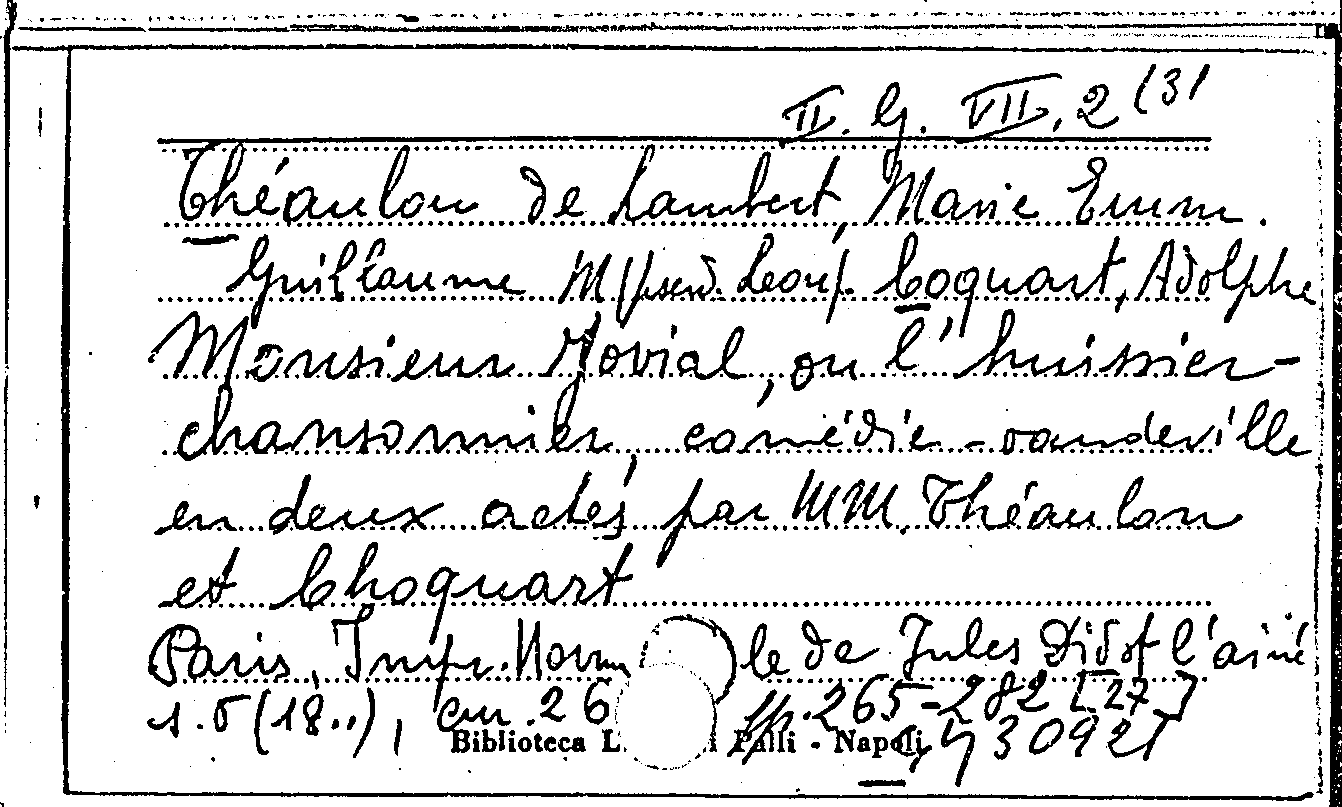 II. G. VII, 2 (3)
Théaulon de Lambert, Marie Emm.
Guillaume M [pseud. Leon]. Coquart, Adolphe
Monsieur Jovial, ou l'huissier-
chansonnier, comédie-vaudeville
en deux actes par MM. Théaulon
et Choquart
Paris, Impr. Norm le de Jules Didot l'ainé
s. d (18..), cm. 26 pp. 265-282 [27]
Biblioteca L i Palli - Napoli